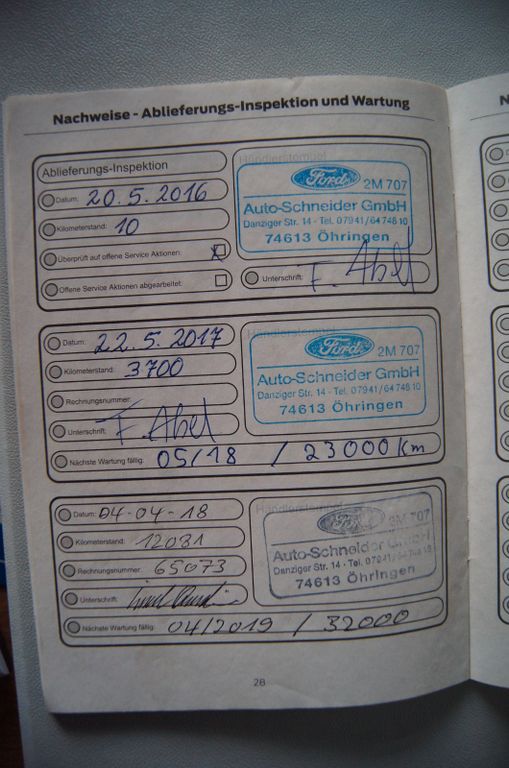 Nachweise - Ablieferungs-Inspektion und Wartung
Ablieferungs-Inspektion
Datum: 20.5.2016
Kilometerstand: 10
Überprüft auf offene Service Aktionen:
Offene Service Aktionen abgearbeitet:
Händlerstempel
Ford 2M 707
Auto-Schneider GmbH
Danziger Str. 14 - Tel. 07941/64 748 10
74613 Öhringen
Unterschrift: F. Abel
Datum: 22.5.2017
Kilometerstand: 3700
Rechnungsnummer:
Unterschrift: F. Abel
Nächste Wartung fällig: 05/18 / 23000 Km
Händlerstempel
Ford 2M 707
Auto-Schneider GmbH
Danziger Str. 14 - Tel. 07941/64 748 10
74613 Öhringen
Datum: 04-04-18
Kilometerstand: 12031
Rechnungsnummer: 65073
Unterschrift:
Nächste Wartung fällig: 04/2019 / 32000
Händlerstempel
Ford 2M 707
Auto-Schneider GmbH
Danziger Str. 14 - Tel. 07941/64 748 10
74613 Öhringen
28